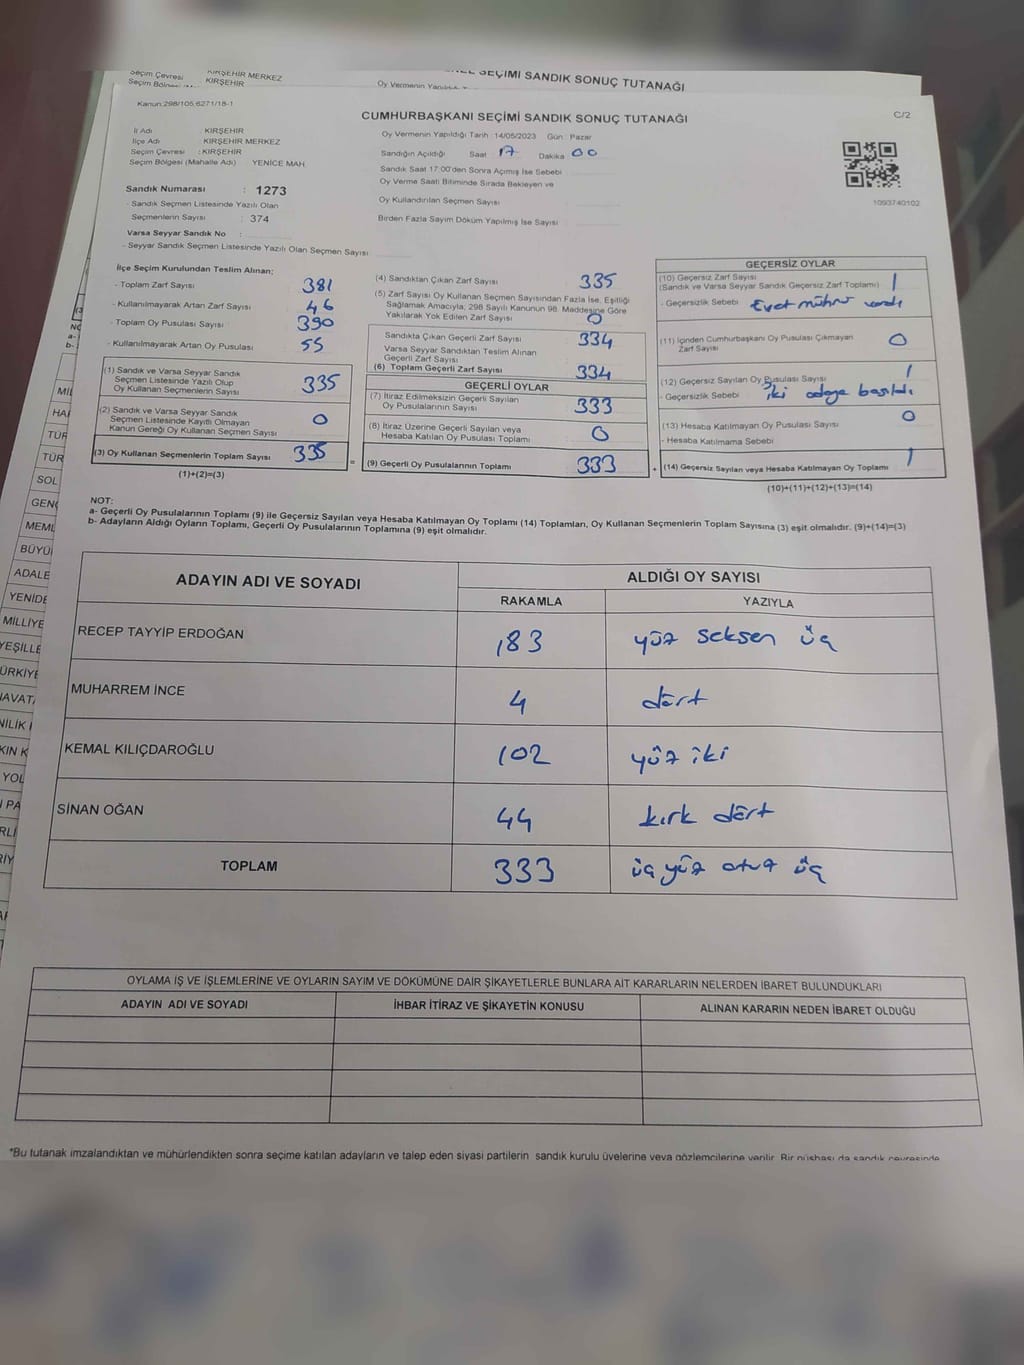 Seçim Çevresi
KIRŞEHİR MERKEZ
KIRŞEHİR
SEÇİMİ SANDIK SONUÇ TUTANAĞI
Oy Vermenin
Kanun:298/105,6271/18-1
CUMHURBAŞKANI SEÇİMİ SANDIK SONUÇ TUTANAĞI
C/2
İl Adı KIRŞEHİR
İlçe Adı KIRŞEHİR MERKEZ
Seçim Çevresi : KIRŞEHİR
Seçim Bölgesi (Mahalle Adı) YENİCE MAH
Oy Vermenin Yapıldığı Tarih :14/05/2023 Gün : Pazar
Sandığın Açıldığı Saat 17 Dakika 00
Sandık Saat 17:00'den Sonra Açımış İse Sebebi
Oy Verme Saati Bitiminde Sırada Bekleyen ve
Oy Kullandırılan Seçmen Sayısı
Birden Fazla Sayım Döküm Yapılmış İse Sayısı
1093740102
Sandık Numarası : 1273
- Sandık Seçmen Listesinde Yazılı Olan
Seçmenlerin Sayısı : 374
Varsa Seyyar Sandık No :
- Seyyar Sandık Seçmen Listesinde Yazılı Olan Seçmen Sayısı
İlçe Seçim Kurulundan Teslim Alınan;
- Toplam Zarf Sayısı 381
- Kullanılmayarak Artan Zarf Sayısı 46
- Toplam Oy Pusulası Sayısı 390
- Kullanılmayarak Artan Oy Pusulası 55
(1) Sandık ve Varsa Seyyar Sandık
Seçmen Listesinde Yazılı Olup
Oy Kullanan Seçmenlerin Sayısı 335
(2) Sandık ve Varsa Seyyar Sandık
Seçmen Listesinde Kayıtlı Olmayan
Kanun Gereği Oy Kullanan Seçmen Sayısı 0
(3) Oy Kullanan Seçmenlerin Toplam Sayısı 335
(1)+(2)=(3)
(4) Sandıktan Çıkan Zarf Sayısı 335
(5) Zarf Sayısı Oy Kullanan Seçmen Sayısından Fazla İse, Eşitliği
Sağlamak Amacıyla; 298 Sayılı Kanunun 98. Maddesine Göre
Yakılarak Yok Edilen Zarf Sayısı 0
Sandıkta Çıkan Geçerli Zarf Sayısı 334
Varsa Seyyar Sandıktan Teslim Alınan
Geçerli Zarf Sayısı
(6) Toplam Geçerli Zarf Sayısı 334
GEÇERLİ OYLAR
(7) İtiraz Edilmeksizin Geçerli Sayılan
Oy Pusulalarının Sayısı 333
(8) İtiraz Üzerine Geçerli Sayılan veya
Hesaba Katılan Oy Pusulası Toplamı 0
= (9) Geçerli Oy Pusulalarının Toplamı 333 +
GEÇERSİZ OYLAR
(10) Geçersiz Zarf Sayısı
(Sandık ve Varsa Seyyar Sandık Geçersiz Zarf Toplamı) 1
- Geçersizlik Sebebi Evet mührü vardı
(11) İçinden Cumhurbaşkanı Oy Pusulası Çıkmayan
Zarf Sayısı 0
(12) Geçersiz Sayılan Oy Pusulası Sayısı 1
- Geçersizlik Sebebi iki adaya basıldı
(13) Hesaba Katılmayan Oy Pusulası Sayısı 0
- Hesaba Katılmama Sebebi
(14) Geçersiz Sayılan veya Hesaba Katılmayan Oy Toplamı 1
(10)+(11)+(12)+(13)=(14)
NOT:
a- Geçerli Oy Pusulalarının Toplamı (9) ile Geçersiz Sayılan veya Hesaba Katılmayan Oy Toplamı (14) Toplamları, Oy Kullanan Seçmenlerin Toplam Sayısına (3) eşit olmalıdır. (9)+(14)=(3)
b- Adayların Aldığı Oyların Toplamı, Geçerli Oy Pusulalarının Toplamına (9) eşit olmalıdır.
ADAYIN ADI VE SOYADI
ALDIĞI OY SAYISI
RAKAMLA YAZIYLA
RECEP TAYYİP ERDOĞAN 183 yüz seksen üç
MUHARREM İNCE 4 dört
KEMAL KILIÇDAROĞLU 102 yüz iki
SİNAN OĞAN 44 kırk dört
TOPLAM 333 üç yüz otuz üç
OYLAMA İŞ VE İŞLEMLERİNE VE OYLARIN SAYIM VE DÖKÜMÜNE DAİR ŞİKAYETLERLE BUNLARA AİT KARARLARIN NELERDEN İBARET BULUNDUKLARI
ADAYIN ADI VE SOYADI İHBAR İTİRAZ VE ŞİKAYETİN KONUSU ALINAN KARARIN NEDEN İBARET OLDUĞU
*Bu tutanak imzalandıktan ve mühürlendikten sonra seçime katılan adayların ve talep eden siyasi partilerin sandık kurulu üyelerine veya gözlemcilerine verilir. Bir nüshası da sandık çevresinde